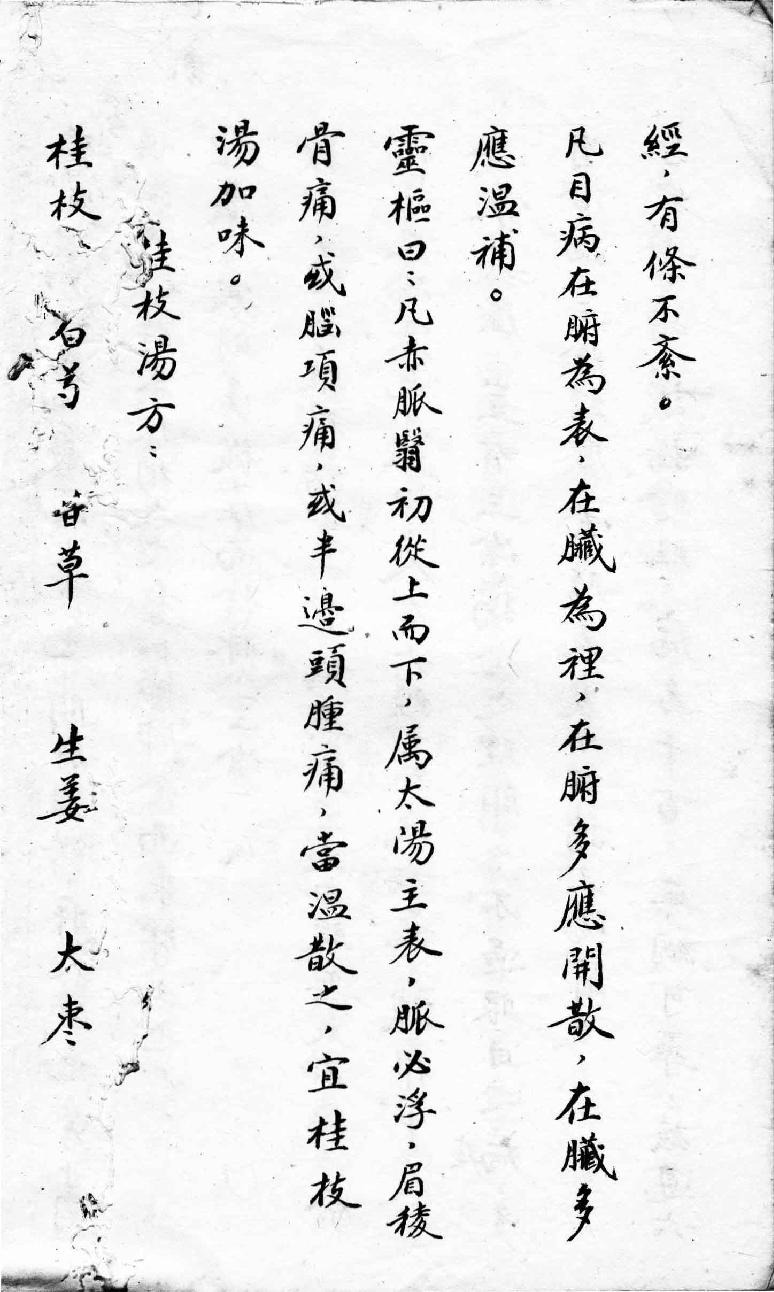 經，有條不紊。
凡目病在腑為表，在臟為裡，在腑多應開散，在臟多
應溫補。
靈樞曰：凡赤脈翳初從上而下，属太湯主表，脈必浮，眉稜
骨痛，或腦項痛，或半邊頭腫痛，當溫散之，宜桂枝
湯加味。
桂枝湯方：
桂枝 白芍 甘草 生姜 太棗